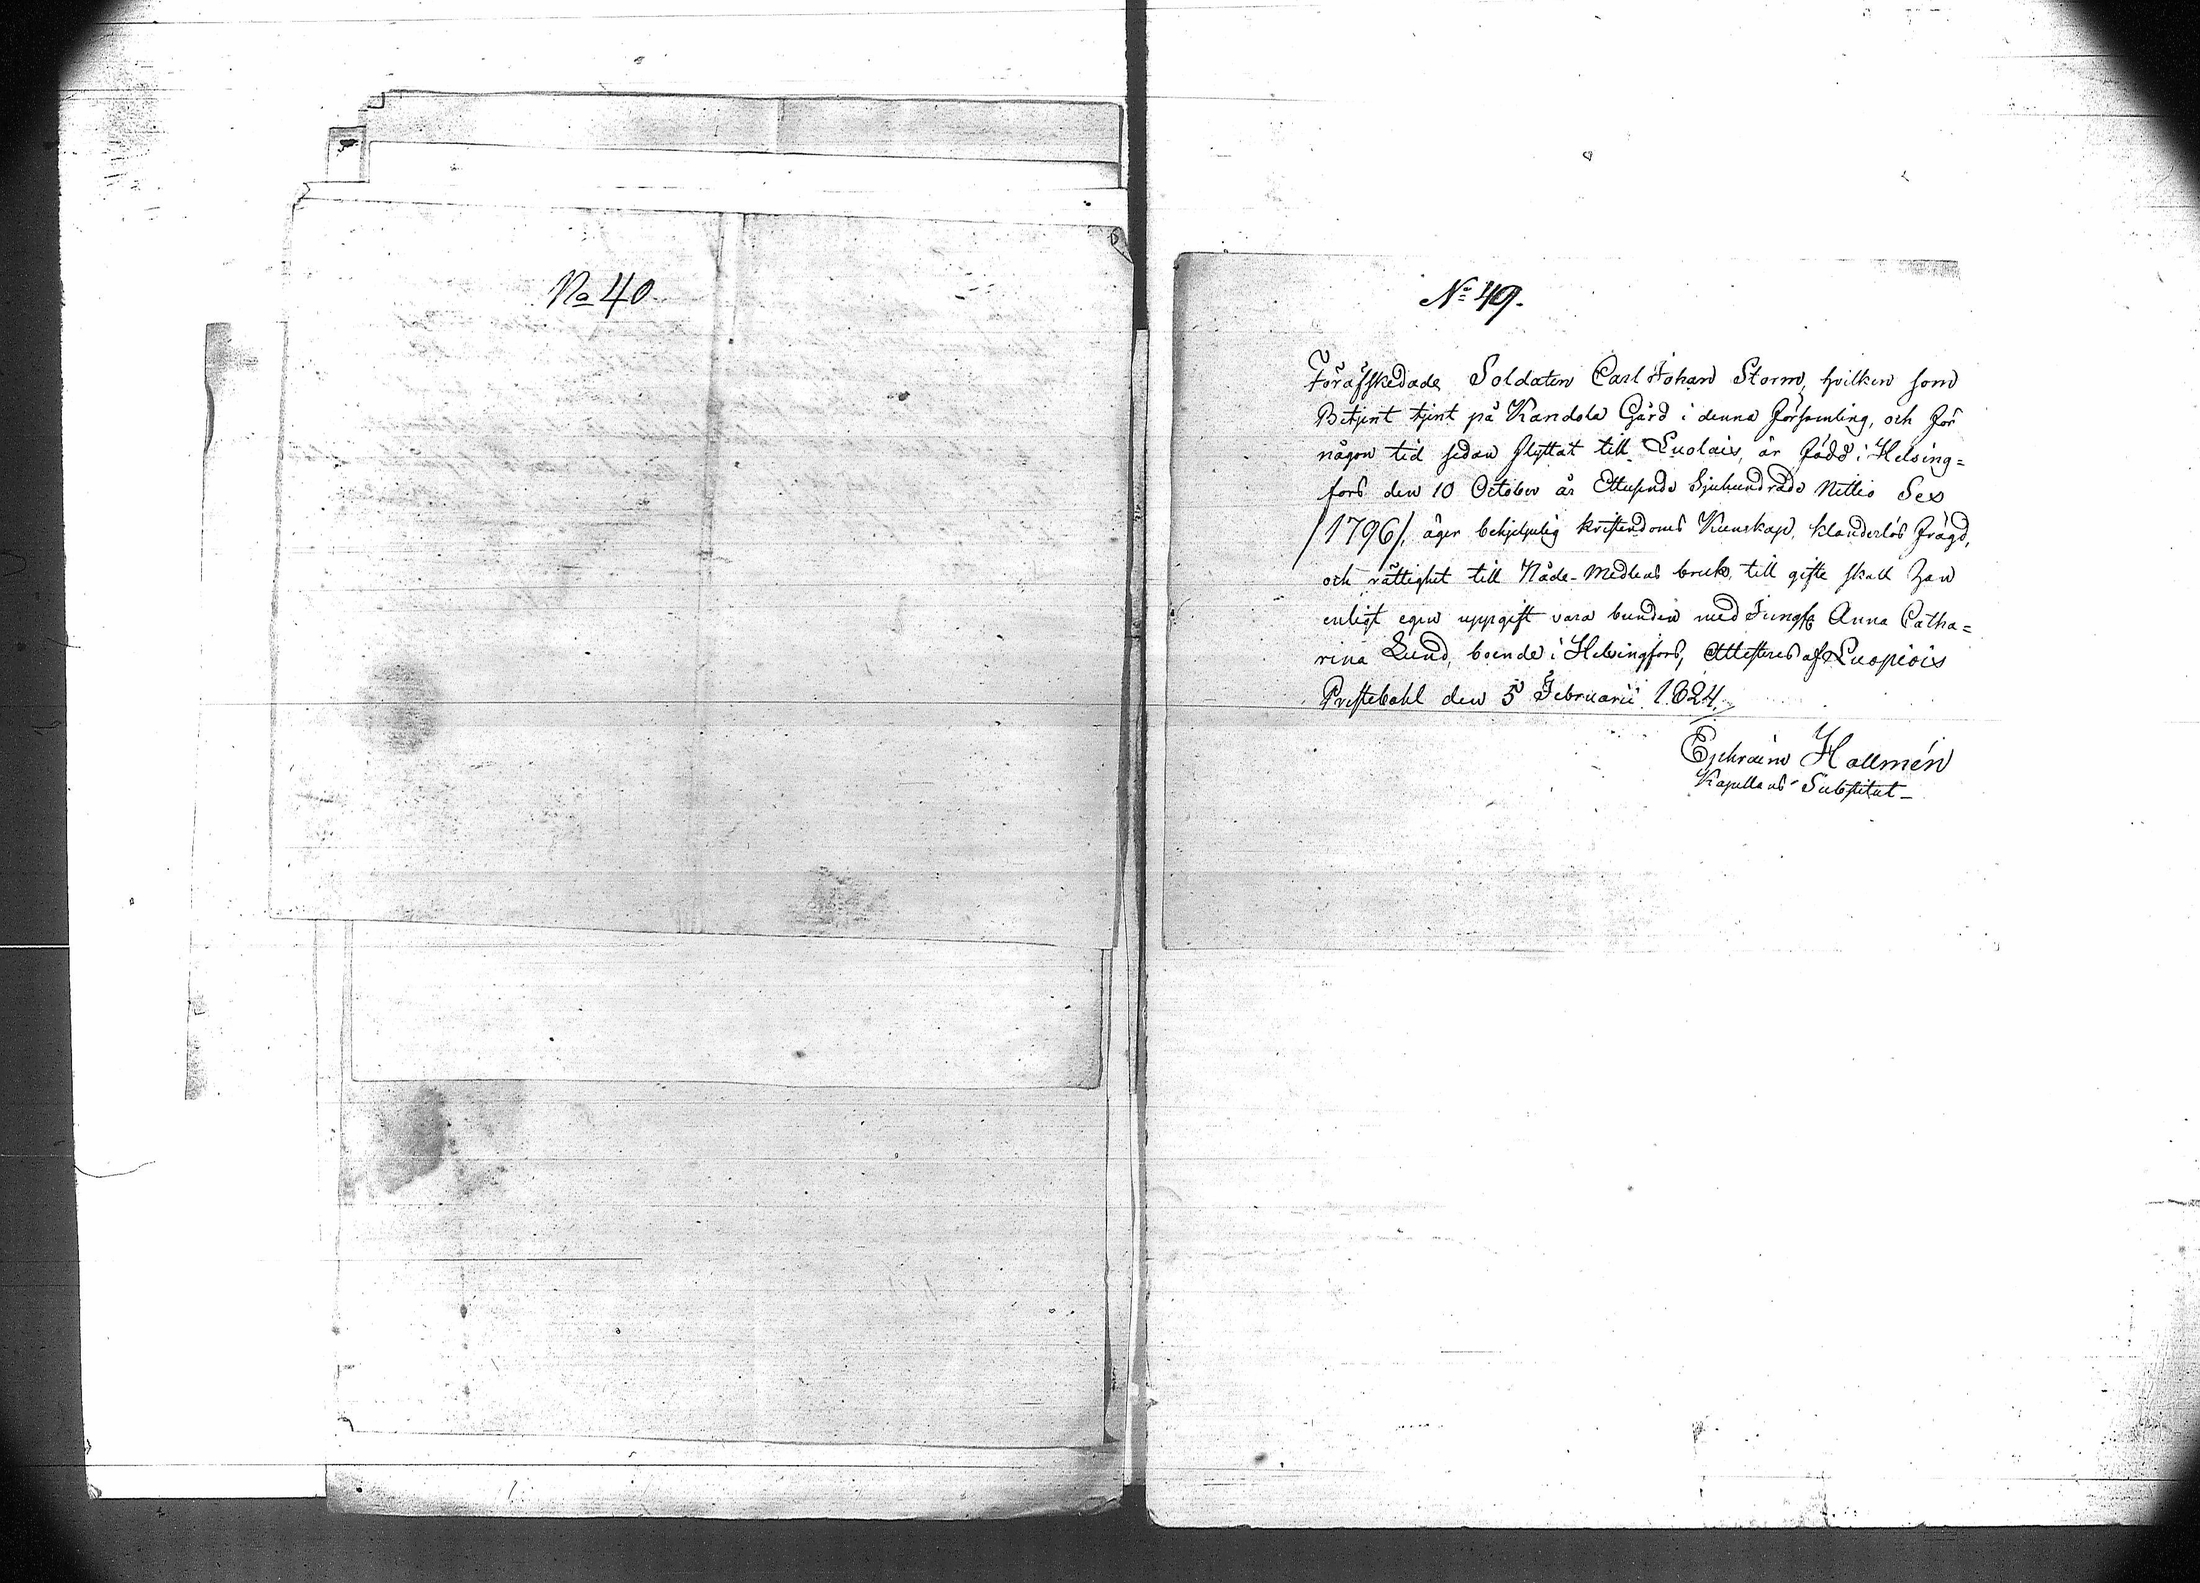 No 40.
No 49.
Förafskedade Soldaten Carl Johan Storm, hvilken som
Betjent tjent på Kandola Gård i denna Församling, och för
någon tid sedan flyttat till Luolais, är född i Helsing=
fors den 10 October år Ettusende Sjuhundrade Nittio Sex
/1796/, äger behjelpelig kristendoms Kunskap, klanderlös frägd,
och rättighet till Nåde-Medlens bruk, till gifte skall han
enligt egen uppgift vara bunden med Jungfr Anna Catha=
rina Lund, boende i Helsingfors, Attesteras af Luopiois
Prestebohl den 5 Februarii 1824.
Ephraim Hallmén
Kapellans-Substitut-